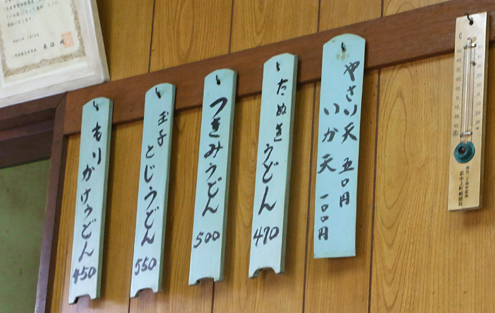 やさい天 五〇円
いか天 一〇〇円
たぬきうどん 470
つきみうどん 500
玉子とじうどん 550
もりかけうどん 450